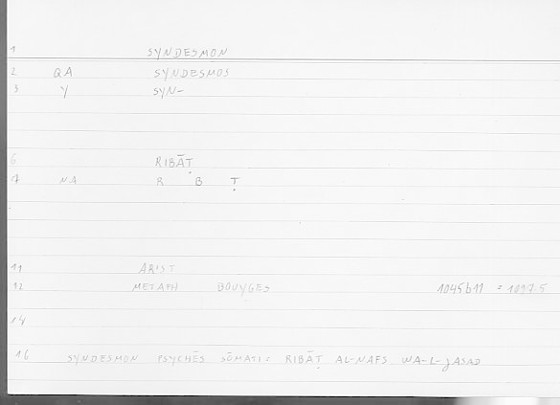 1 SYNDESMON
2 QA SYNDESMOS
3 Y SYN-
6 RIBĀṬ
7 NA R B Ṭ
11 ARIST
12 METAPH BOUYGES 1045b11 = 1097:5
14
16 SYNDESMON PSYCHĒS SŌMATI: RIBĀṬ AL-NAFS WA-L-JASAD